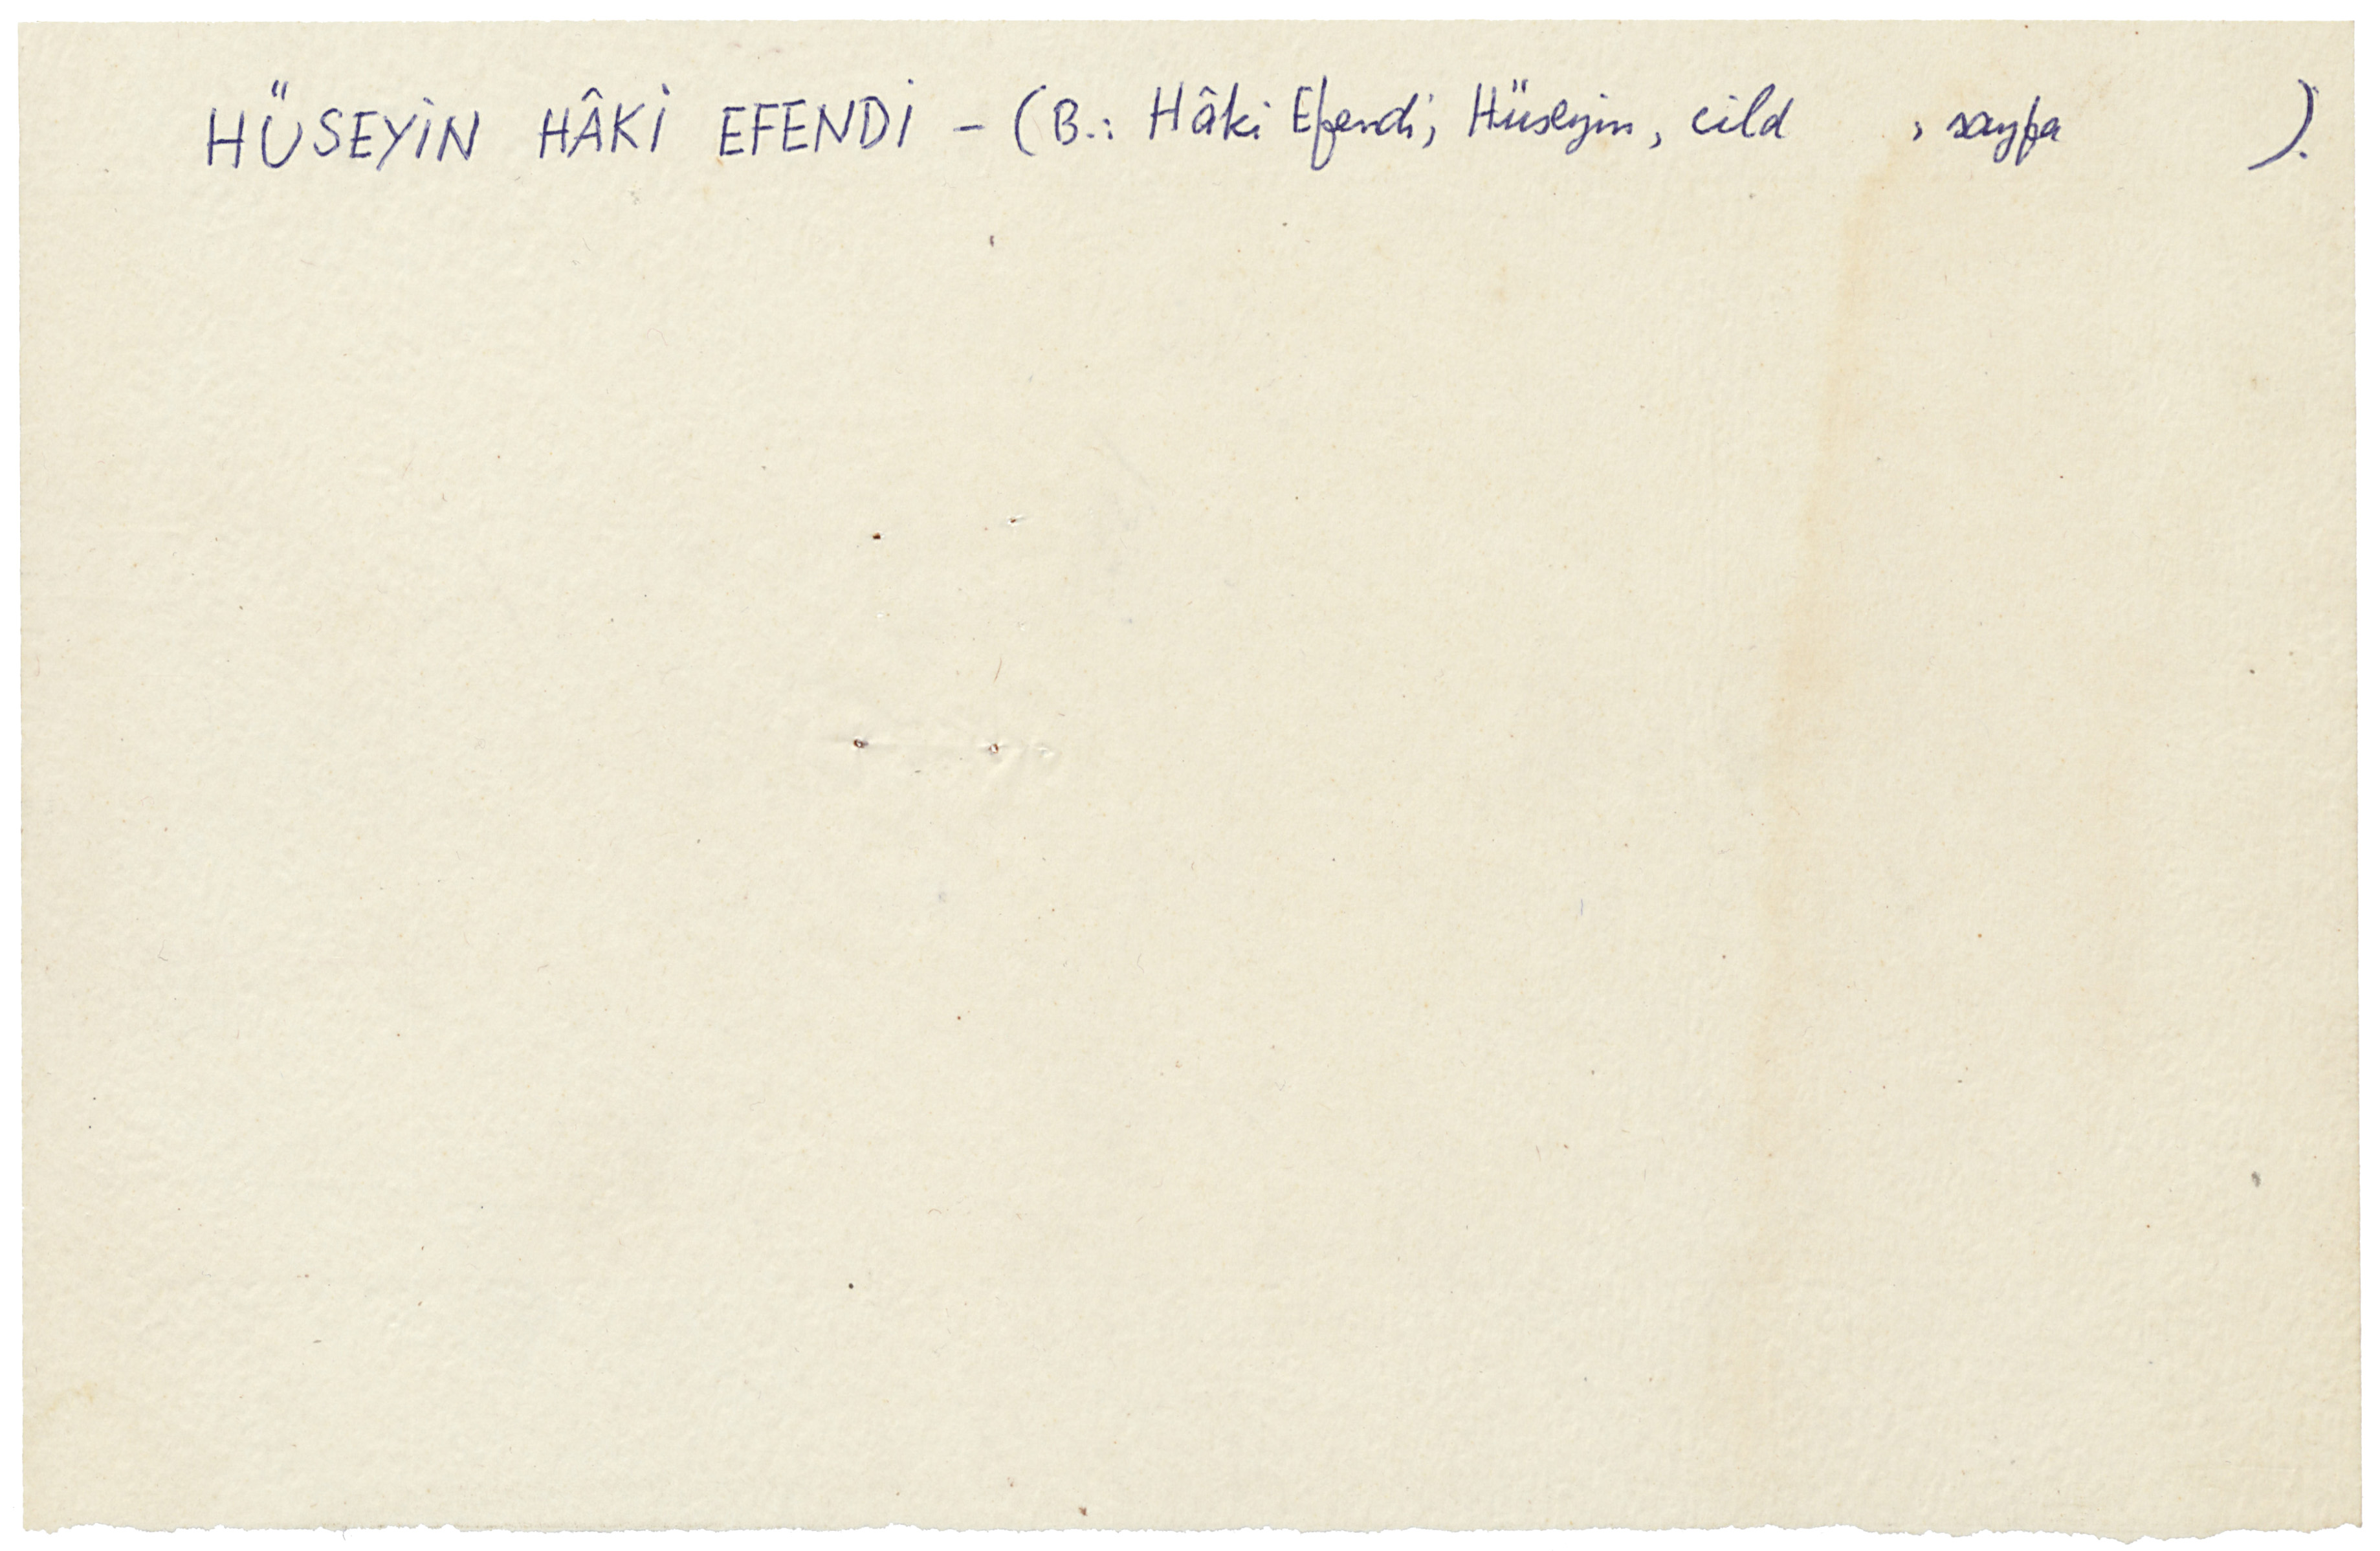 HÜSEYİN HÂKİ EFENDİ - (B.: Hâki Efendi, Hüseyin, cild , sayfa ).